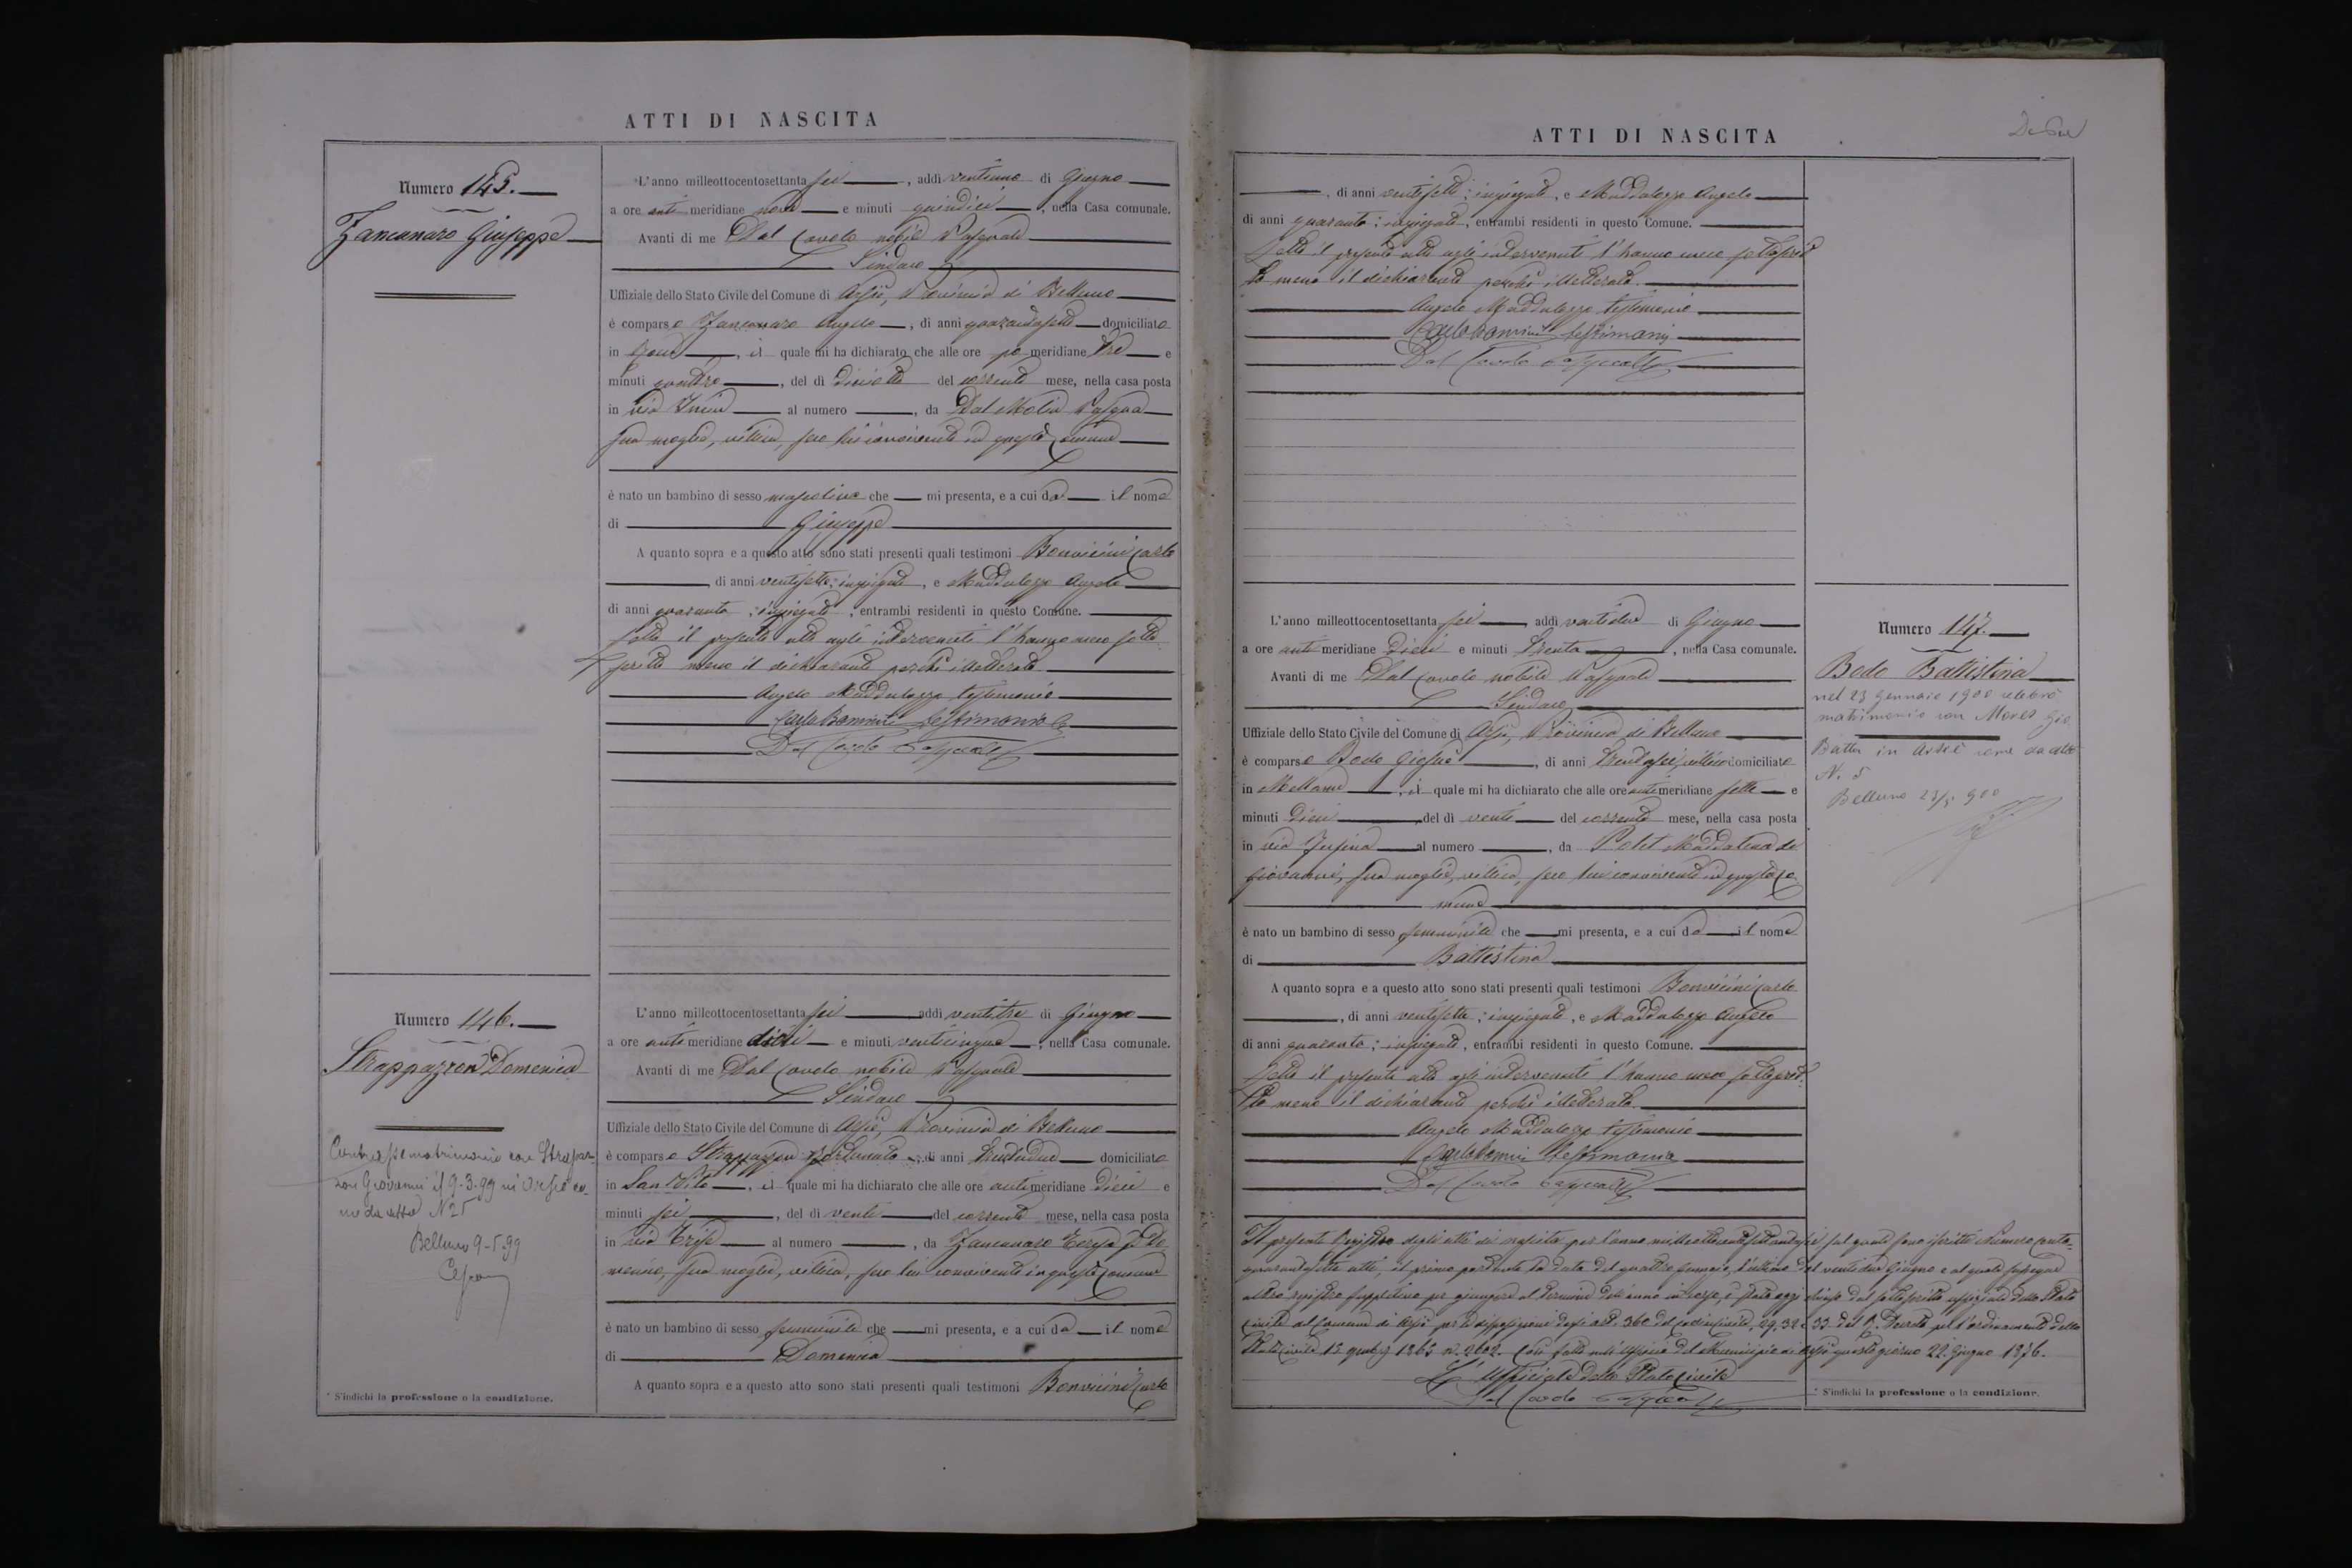 ATTI DI NASCITA
Numero 145.
Zancanaro Giuseppe
L'anno milleottocentosettanta sei, addi ventiuno di Giugno
a ore anti meridiane nove e minuti quindici, nella Casa comunale.
Avanti di me Dal Covolo nobile Pasquale
Sindaco
Uffiziale dello Stato Civile del Comune di Arsiè, Provincia di Belluno
è comparso Zancanaro Angelo, di anni quarantasette domiciliato
in, il quale mi ha dichiarato che alle ore po meridiane tre e
minuti quattro, del dì diciotto del corrente mese, nella casa posta
in via al numero, da Dal Molin Pasqua
sua moglie, villica, seco lui convivente in questo Comune
è nato un bambino di sesso mascolino che mi presenta, e a cui da il nome
di Giuseppe
A quanto sopra e a questo atto sono stati presenti quali testimoni Bonvicini Carlo
di anni ventisette, impiegato, e Maddalozzo Angelo
di anni quaranta, impiegato, entrambi residenti in questo Comune.
Letto il presente atto agli intervenuti l'hanno meco sotto
scritto meno il dichiarante perchè illetterato.
Angelo Maddalozzo testimonio
Carlo Bonvicini testimonio
Dal Covolo Pasquale
Numero 146.
Strappazzon Domenica
Contrasse matrimonio con Strapaz
zon Giovanni il 9-3-99 in Arsiè co
me da atto N 25
Belluno 9-5-99
L'anno milleottocentosettanta sei addi ventitre di Giugno
a ore anti meridiane dieci e minuti venticinque, nella Casa comunale.
Avanti di me Dal Covolo nobile Pasquale
Sindaco
Uffiziale dello Stato Civile del Comune di Arsiè, Provincia di Belluno
è comparso Strappazzon Fortunato, di anni trentadue domiciliato
in San Vito, il quale mi ha dichiarato che alle ore anti meridiane dieci e
minuti sei, del dì venti del corrente mese, nella casa posta
in via al numero, da Zancanaro Teresa fu Do
menico, sua moglie, villica, seco lui convivente in questo Comune
è nato un bambino di sesso femminile che mi presenta, e a cui da il nome
di Domenica
A quanto sopra e a questo atto sono stati presenti quali testimoni Bonvicini Carlo
* S'indichi la professione o la condizione.
ATTI DI NASCITA
, di anni ventisette, impiegato, e Maddalozzo Angelo
di anni quaranta, impiegato, entrambi residenti in questo Comune.
Letto il presente atto agli intervenuti l'hanno meco sottoscrit
to meno il dichiarante perchè illetterato.
Angelo Maddalozzo testimonio
Carlo Bonvicini testimonio
Dal Covolo Pasquale
L'anno milleottocentosettanta sei, addi ventidue di Giugno
a ore anti meridiane dieci e minuti trenta, nella Casa comunale.
Avanti di me Dal Covolo nobile Pasquale
Sindaco
Uffiziale dello Stato Civile del Comune di Arsiè, Provincia di Belluno
è comparso Bodo Giosuè, di anni trentasei, villico domiciliato
in Mellame, il quale mi ha dichiarato che alle ore anti meridiane sette e
minuti dieci, del dì venti del corrente mese, nella casa posta
in via al numero, da Polet Maddalena di
Giovanni, sua moglie, villica, seco lui convivente in questo Co
mune
è nato un bambino di sesso femminile che mi presenta, e a cui da il nome
di Battistina
A quanto sopra e a questo atto sono stati presenti quali testimoni Bonvicini Carlo
, di anni ventisette, impiegato, e Maddalozzo Angelo
di anni quaranta, impiegato, entrambi residenti in questo Comune.
Letto il presente atto agli intervenuti l'hanno meco sottoscrit
to meno il dichiarante perchè illetterato.
Angelo Maddalozzo testimonio
Carlo Bonvicini testimonio
Dal Covolo Pasquale
Numero 147.
Bodo Battistina
nel 23 gennaio 1900 celebrò
matrimonio con Moves Gio
Batta in Arsiè come da atto
N. 5
Belluno 23/5 900
Il presente Registro degli atti di nascita per l'anno milleottocentosettantasei sul quale sono iscritti Numero cento
quarantasette atti, il primo portante la data del quattro Gennajo, l'ultimo del ventidue Giugno e al quale segue
altro registro suppletivo per giungere al termine dell'anno in corso, è stato oggi chiuso dal sottoscritto uffiziale dello Stato
civile del Comune di Arsiè per le disposizioni degli art. 360 del codice civile, 29, 32 e 33 del R. Decreto per l'ordinamento dello
Stato civile 15 9mbre 1865 N. 2602. Così fatto nell'ufficio del Municipio di Arsiè questo giorno 22 Giugno 1876.
L'Ufficiale dello Stato Civile
Dal Covolo Pasquale
* S'indichi la professione o la condizione.